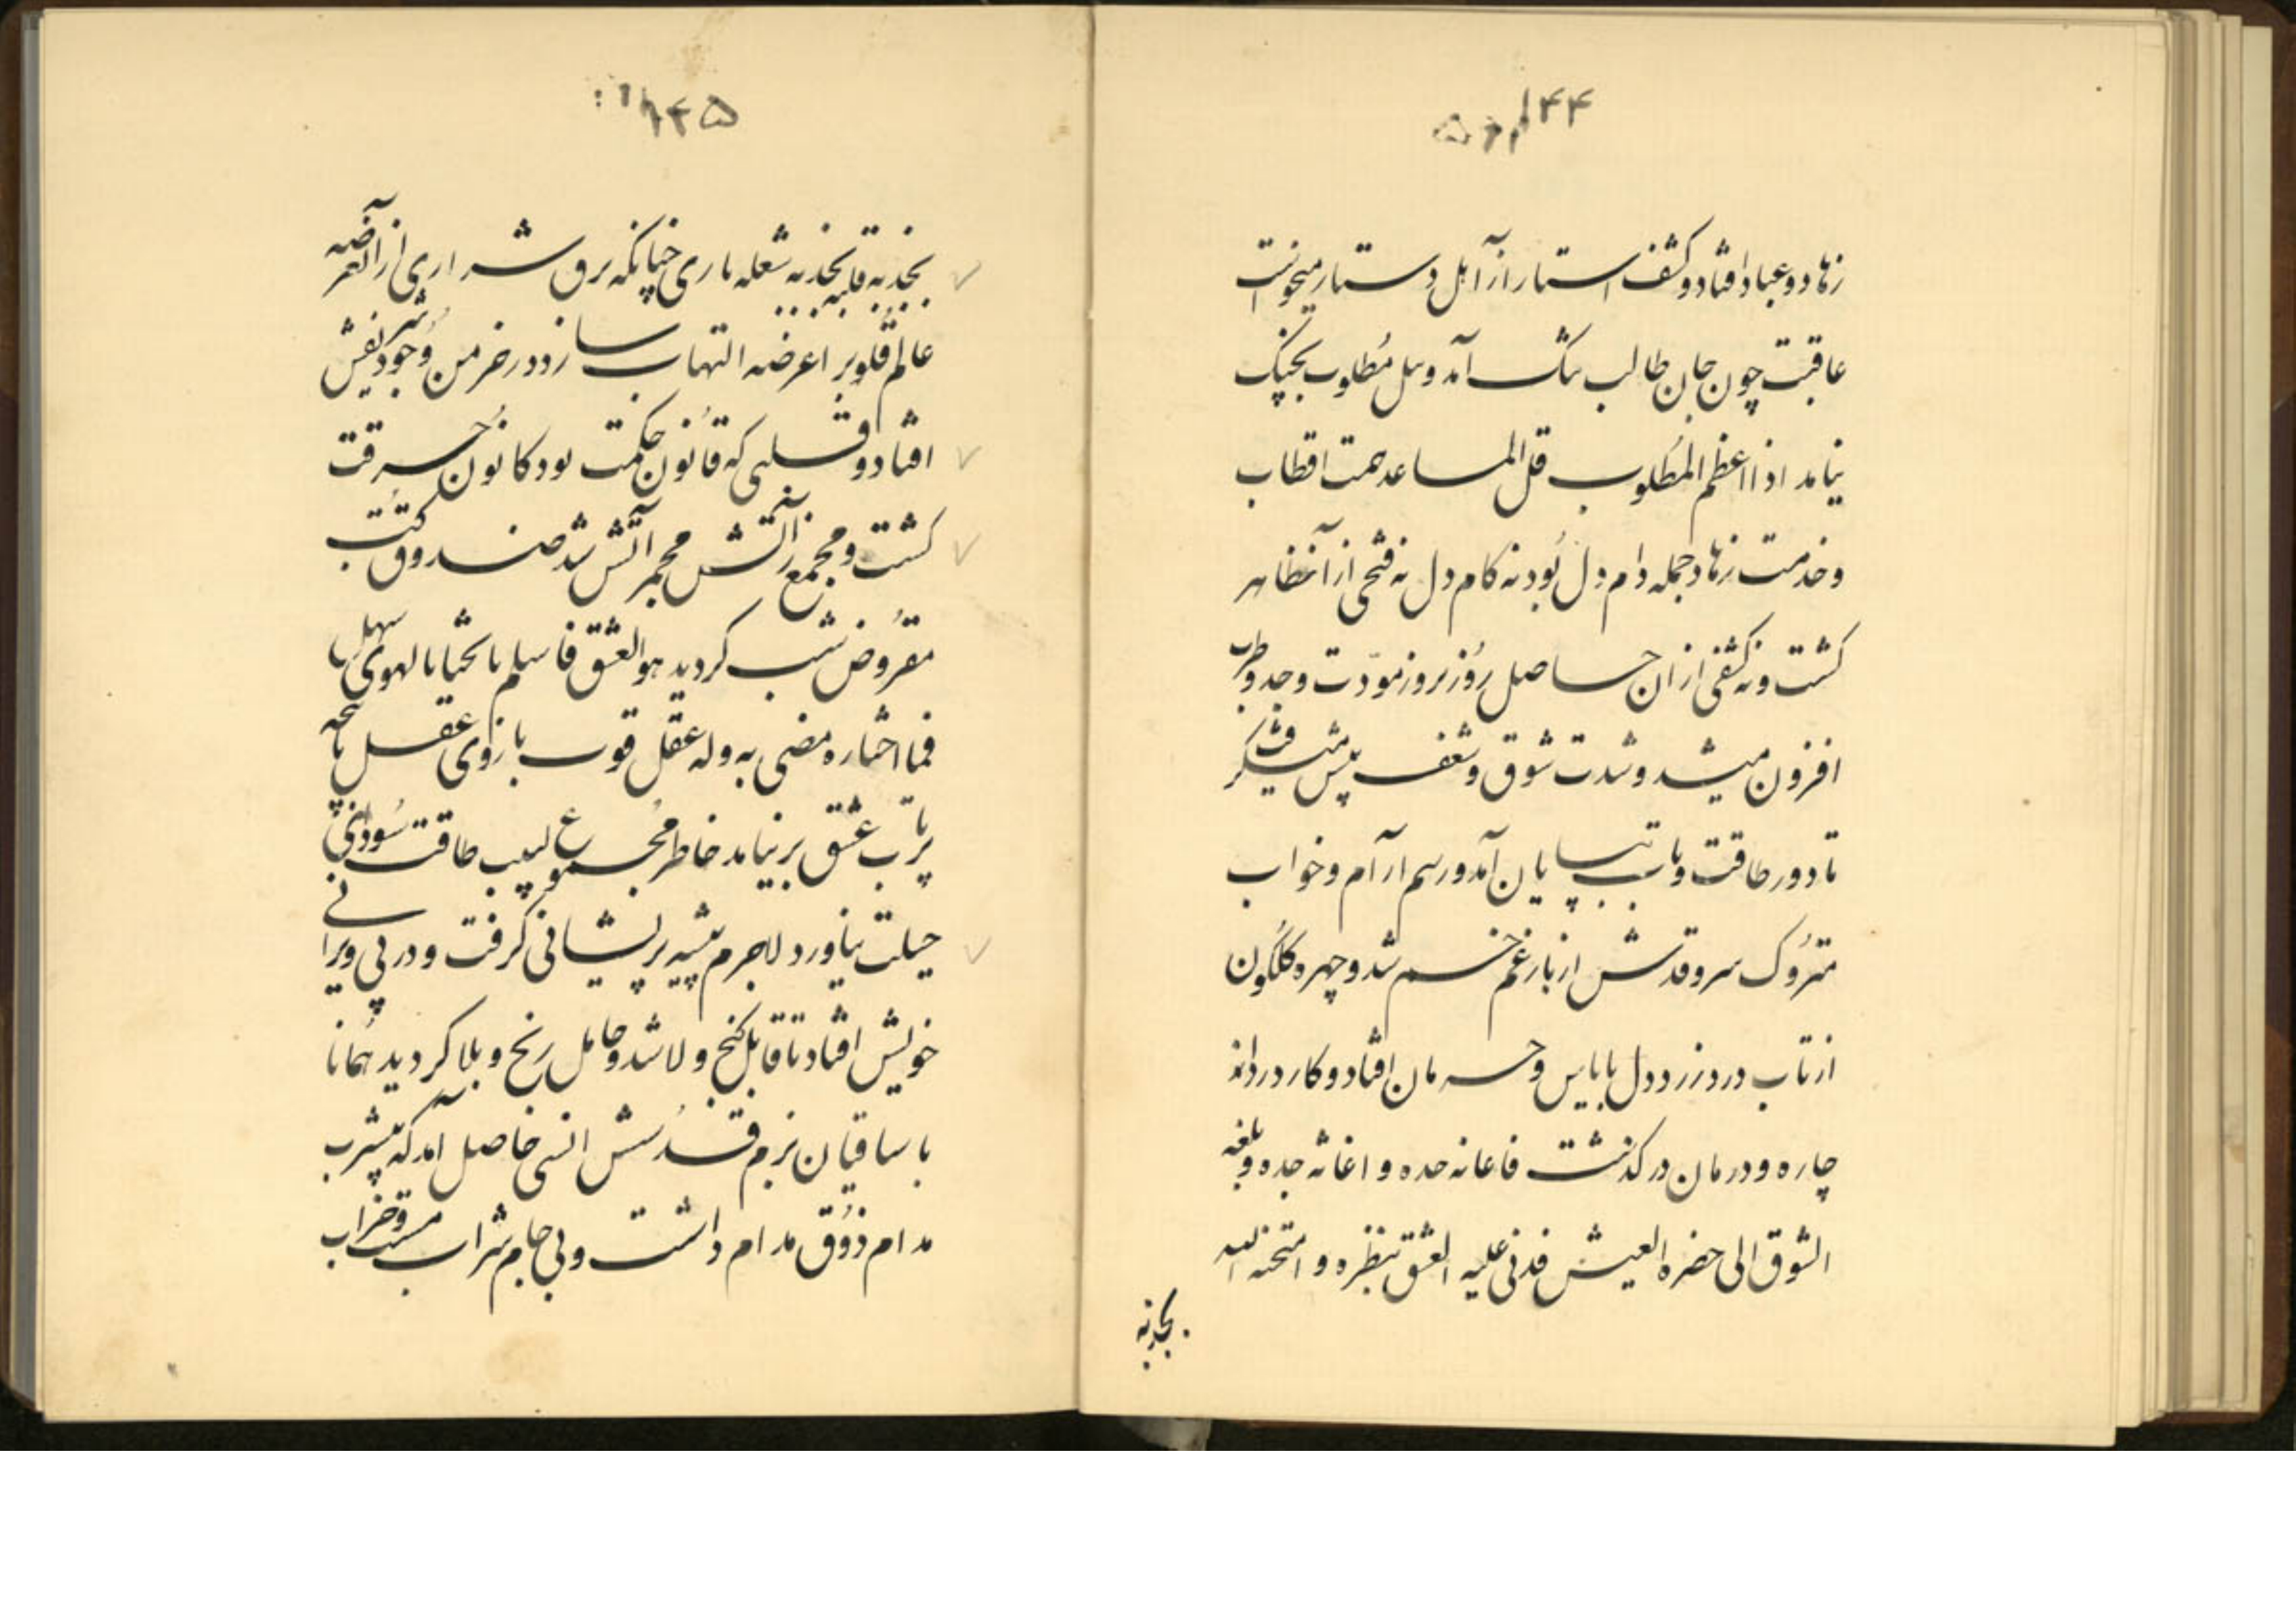 ۱۴۴
زهاد و عباد افتاد و کشف استار از آن اهل دستار میخواست
عاقبت چون جان طالب بتنگ آمد و نیل مطلوب بچنگ
نیامد اذا اعظم المطلوب قل المساعد همت اقطاب
و خدمت زهاد جمله دام دل بود نه کام دل نه فتحی از آن ظاهر
کشت و نه کشفی از ان حاصل روز بروز مودت وجد و طرب
افزون میشد و شدت شوق و شغف بیش
تا دور طاقت و تاب بپایان آمد و رسم آرام و خواب
متروک سرو قدش از بار غم خم شد و چهره گلگون
از تاب درد زرد دل با یاس و حرمان افتاد و کار درد از
چاره و درمان در کذشت فاعانه جده و اغاثه جده و بلغه
الشوق الی حضره العیش فدنی علیه العشق بنظره و امتحنه الله
بجذبه
۱۴۵
بجذبه قلبه بجذبه شعله ناری چنانکه برق شراری از آن
عالم قلوبر اعرضه التهاب سازد در خرمن وجود شریفش
افتاد و قلبی که قانون حکمت بود کانون حسرقت
کشت و مجمع زآتش مجمر آتش شد صندوق کتب
مقروض شب کردید هو العشق فاسلم بالحشا ما الهوی سهل
فما اختاره مضنی به وله عقل قوت بازوی عقل با
پرتاب عشق برنیامد خاطر مجموع لبیب طاقت سودای
حیلت نیاورد لاجرم پیشه پریشانی کرفت و در پی ویرانی
خویش افتاد تا قابل کنج ولا شد و حامل رنج و بلا کردید همانا
با ساقیان بزم قدسش انسی حاصل آمد که بیشرب
مدام ذوق مدام داشت و بی جام شراب مست و خراب